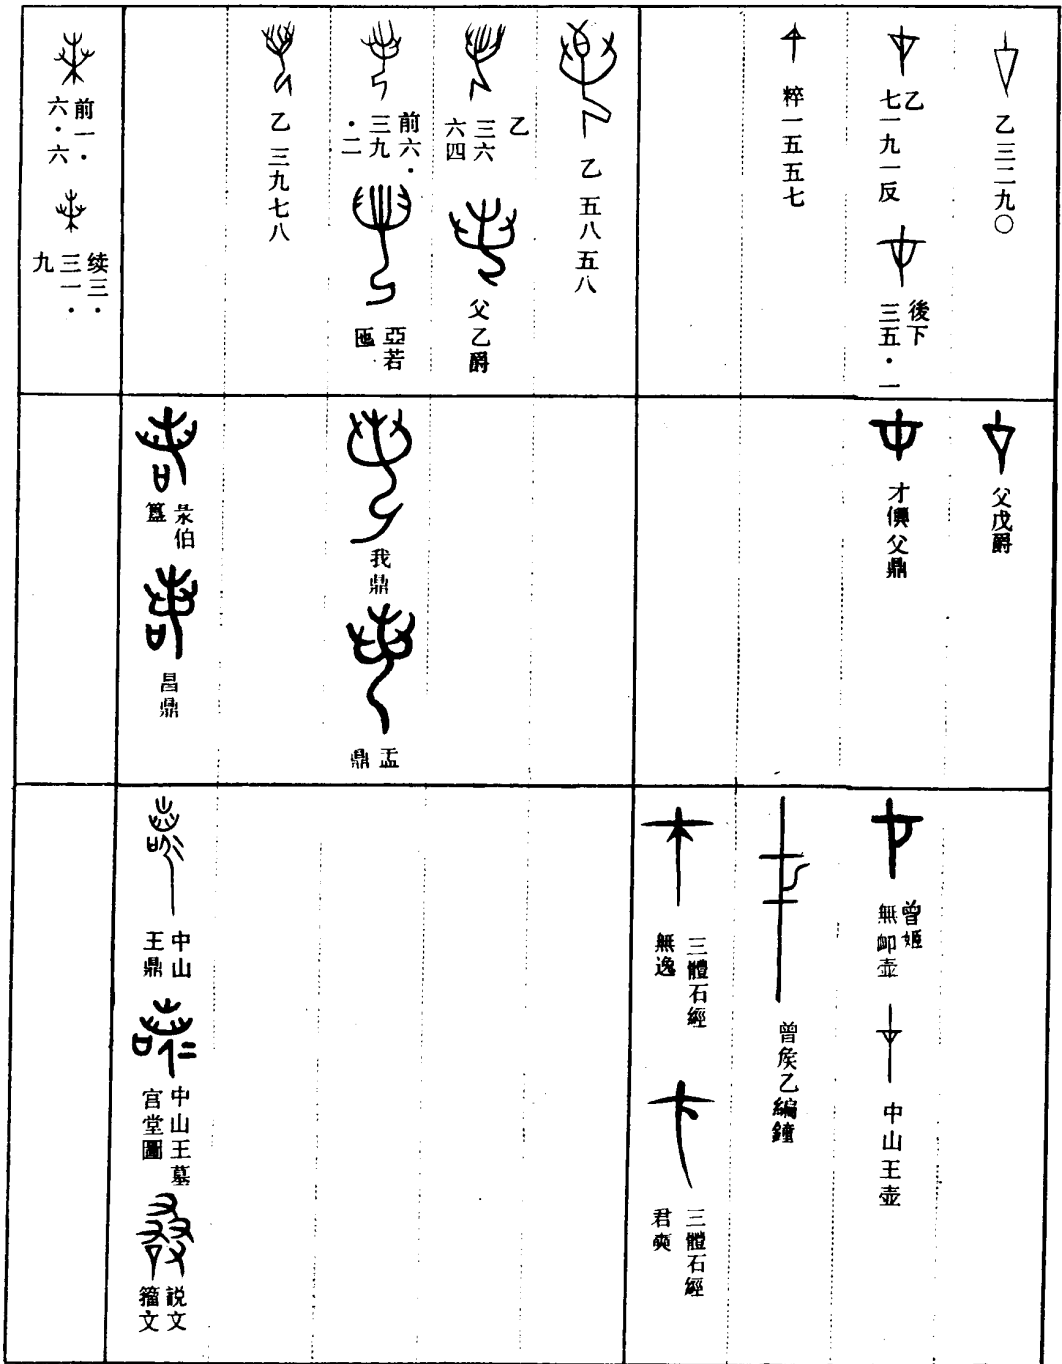 乙三二九〇
乙
七一九一反
後下
三五·一
粹一五五七
乙五八五八
乙
三六
六四
父乙爵
前六·
三九
·二
亞若
匜
乙三九七八
前一·
六·六
续三·
三一·
九
父戊爵
才 父鼎
我鼎
盂
鼎
彔伯
簋
鼎
曾姬
無卹壺
中山王壺
曾侯乙編鐘
三體石經
無逸
三體石經
君奭
中山
王鼎
中山王墓
宫堂圖
説文
籀文